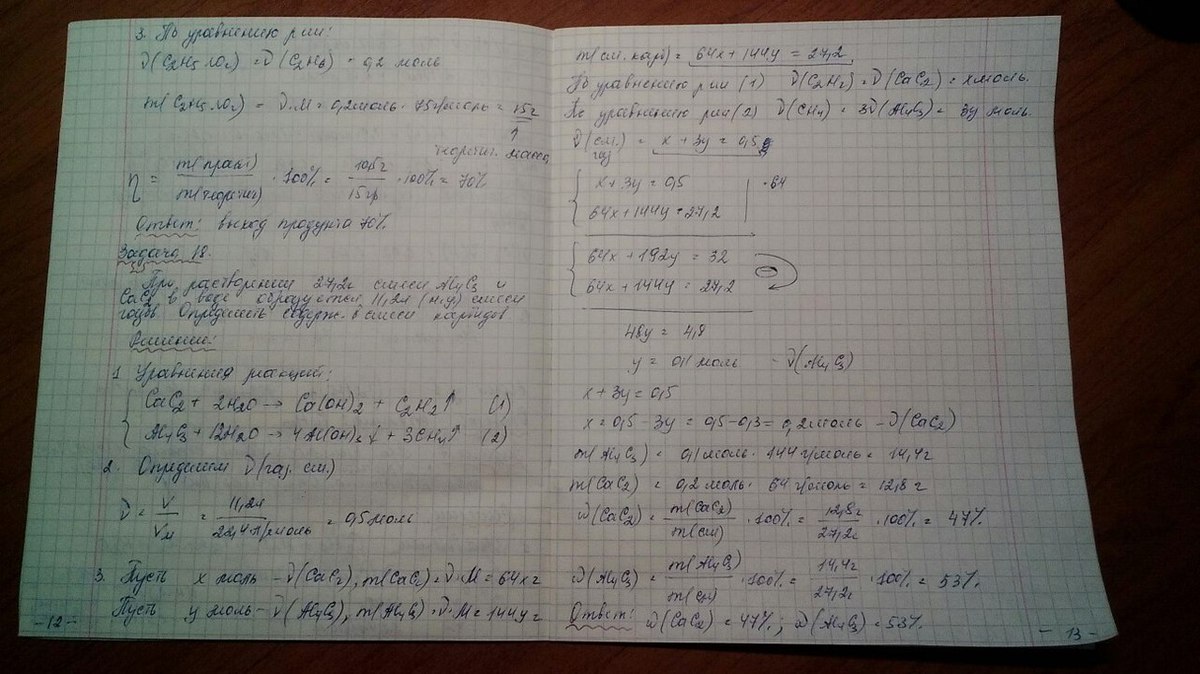 3. По уравнению р-ии:
ν(C2H5NO2) = ν(C2H6) = 0,2 моль
m(C2H5NO2) = ν·M = 0,2моль · 75г/моль = 15г
↑
теоретич. масса
η = m(практ) / m(теоретич) · 100% = 10,5г / 15гр · 100% = 70%
Ответ: выход продукта 70%
Задача 18.
При растворении 27,2г смеси Al4C3 и
CaC2 в воде образуется 11,2л (н.у) смеси
газов. Определить содерж. в смеси карбидов
Решение:
1 Уравнения реакций:
CaC2 + 2H2O → Ca(OH)2 + C2H2↑ (1)
Al4C3 + 12H2O → 4Al(OH)3↓ + 3CH4↑ (2)
2. Определим ν(газ. см.)
ν = V / Vм = 11,2л / 22,4 л/моль = 0,5 моль
3. Пусть x моль - ν(CaC2), m(CaC2) = ν·M = 64x г
Пусть y моль - ν(Al4C3), m(Al4C3) = ν·M = 144y г
-12-
m(см. карб) = 64x + 144y = 27,2
По уравнению р-ии (1) ν(C2H2) = ν(CaC2) = x моль.
По уравнению р-ии (2) ν(CH4) = 3ν(Al4C3) = 3y моль.
ν(см. газ) = x + 3y = 0,5
x + 3y = 0,5 | ·64
64x + 144y = 27,2
64x + 192y = 32
64x + 144y = 27,2
48y = 4,8
y = 0,1 моль - ν(Al4C3)
x + 3y = 0,5
x = 0,5 - 3y = 0,5 - 0,3 = 0,2 моль - ν(CaC2)
m(Al4C3) = 0,1 моль · 144 г/моль = 14,4г
m(CaC2) = 0,2 моль · 64 г/моль = 12,8 г
ω(CaC2) = m(CaC2) / m(см) · 100% = 12,8г / 27,2г · 100% = 47%
ω(Al4C3) = m(Al4C3) / m(см) · 100% = 14,4г / 27,2г · 100% = 53%
Ответ: ω(CaC2) = 47%; ω(Al4C3) = 53%
- 13 -